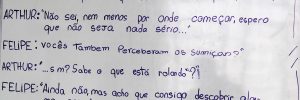 ARTHUR: "Não sei, nem menos por onde começar, espero
que não seja nada sério..."
FELIPE: Vocês Tambem Perceberam os sumiços?"
ARTHUR: "...sm? Sabe o que está rolando"?
FELIPE: "Ainda não, mas acho que consigo descobrir